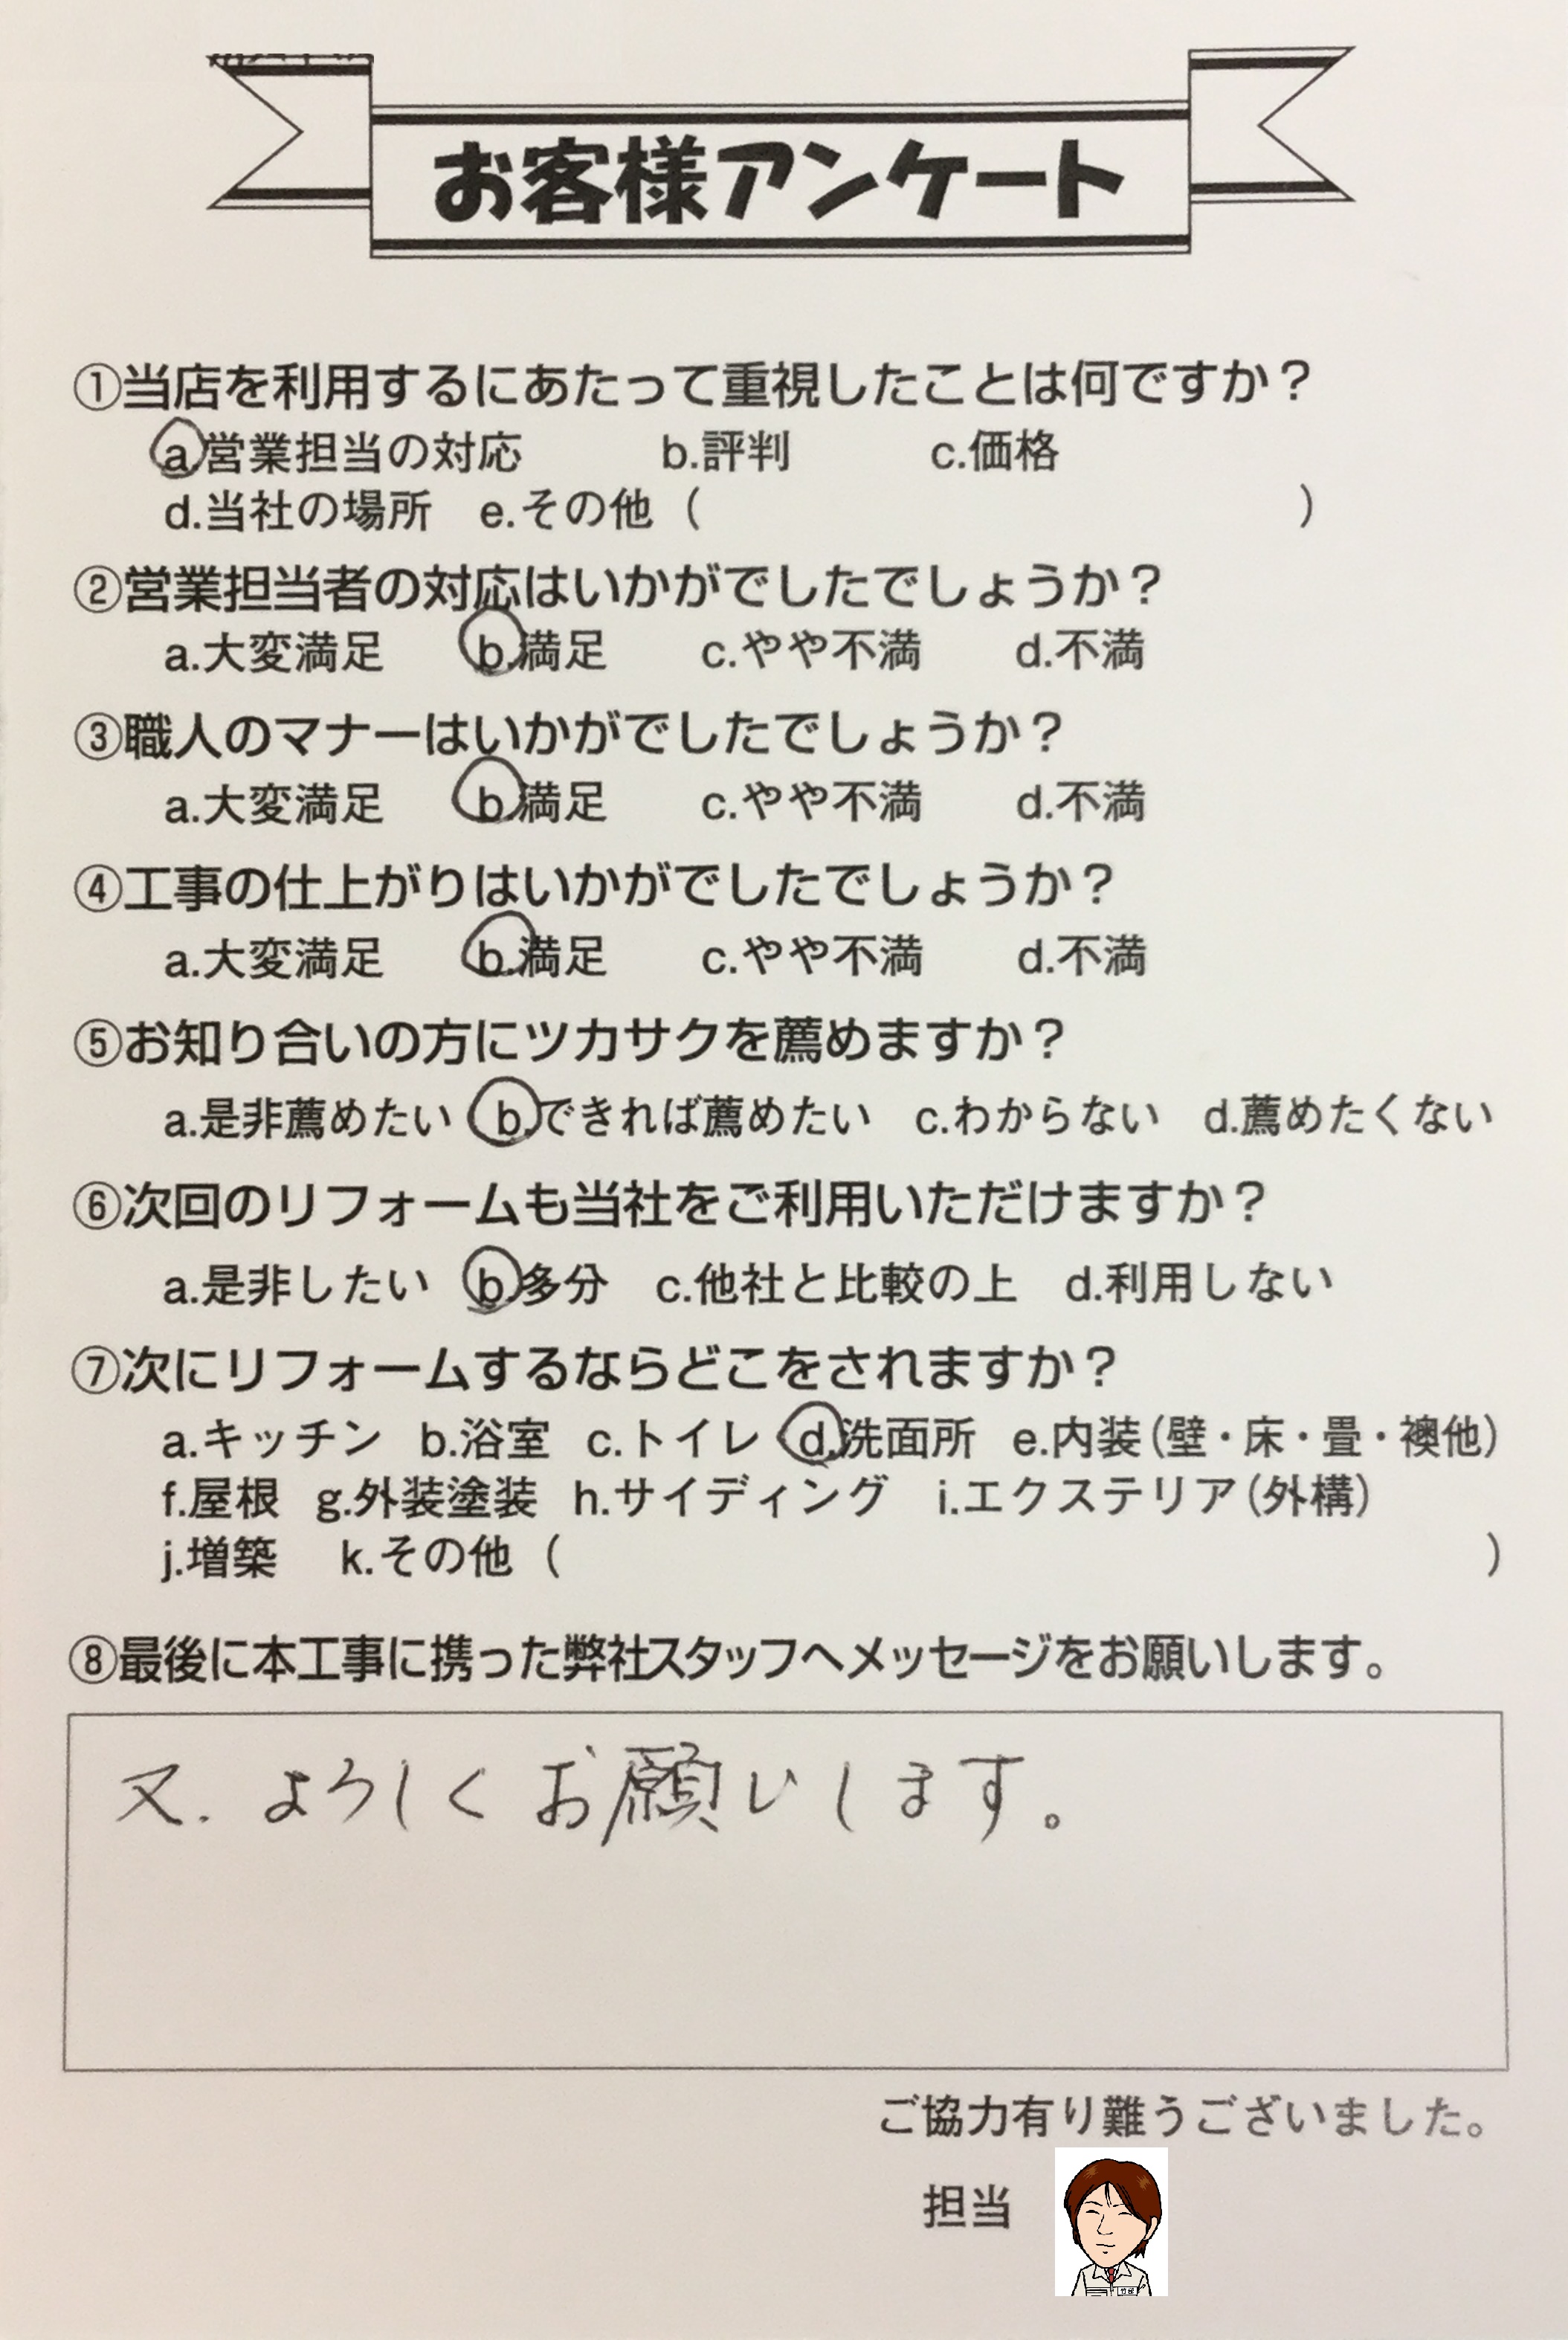 お客様アンケート
①当店を利用するにあたって重視したことは何ですか？
a.営業担当の対応 b.評判 c.価格
d.当社の場所 e.その他（ ）
②営業担当者の対応はいかがでしたでしょうか？
a.大変満足 b.満足 c.やや不満 d.不満
③職人のマナーはいかがでしたでしょうか？
a.大変満足 b.満足 c.やや不満 d.不満
④工事の仕上がりはいかがでしたでしょうか？
a.大変満足 b.満足 c.やや不満 d.不満
⑤お知り合いの方にツカサクを薦めますか？
a.是非薦めたい b.できれば薦めたい c.わからない d.薦めたくない
⑥次回のリフォームも当社をご利用いただけますか？
a.是非したい b.多分 c.他社と比較の上 d.利用しない
⑦次にリフォームするならどこをされますか？
a.キッチン b.浴室 c.トイレ d.洗面所 e.内装（壁・床・畳・襖他）
f.屋根 g.外装塗装 h.サイディング i.エクステリア（外構）
j.増築 k.その他（ ）
⑧最後に本工事に携った弊社スタッフへメッセージをお願いします。
又、よろしくお願いします。
ご協力有り難うございました。
担当